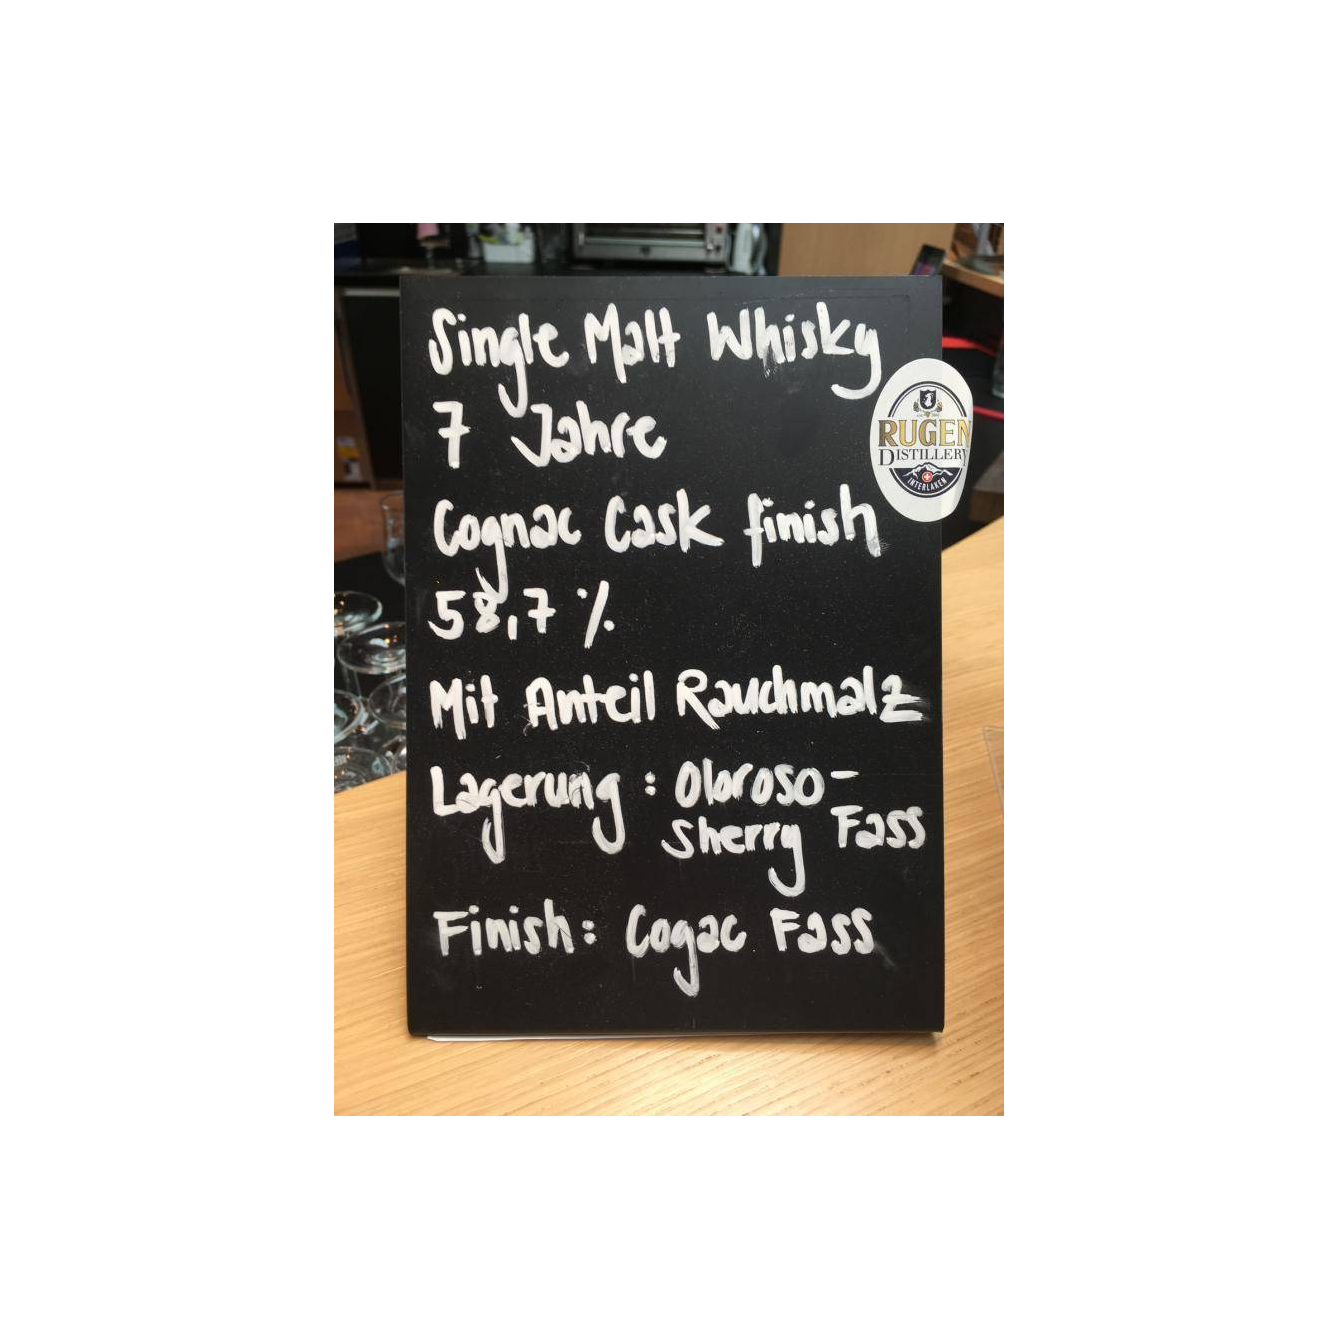 Single Malt Whisky
7 Jahre
Cognac Cask finish
58,7 %
Mit Anteil Rauchmalz
Lagerung : Oloroso-
Sherry Fass
Finish: Cogac Fass
RUGEN
DISTILLERY
INTERLAKEN